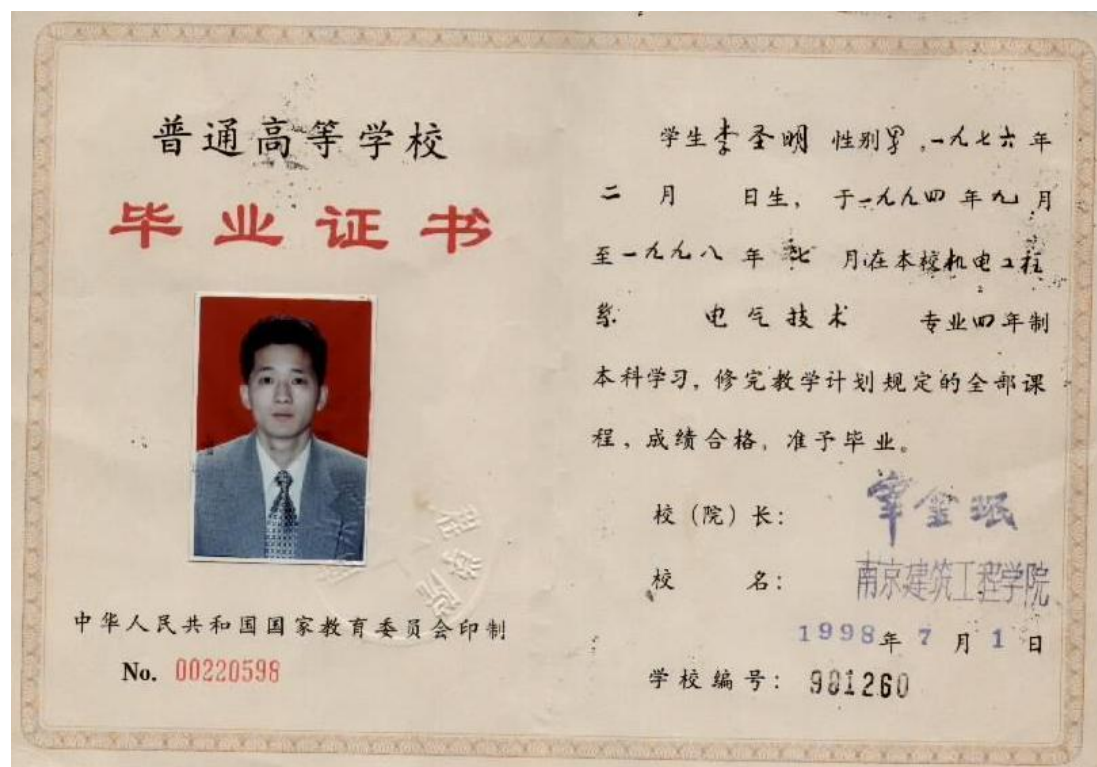 普通高等学校
毕业证书
中华人民共和国国家教育委员会印制
No. 00220598
学生李圣明 性别男,一九七六年
二 月 日生, 于一九九四年九月
至一九九八年七月在本校机电工程
系 电气技术 专业四年制
本科学习,修完教学计划规定的全部课
程,成绩合格,准予毕业。
校(院)长: 宰金珉
校 名: 南京建筑工程学院
1998年7月1日
学校编号: 981260